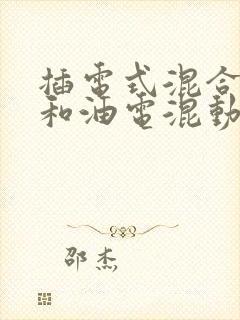 插電式混合
和油電混動
邵杰